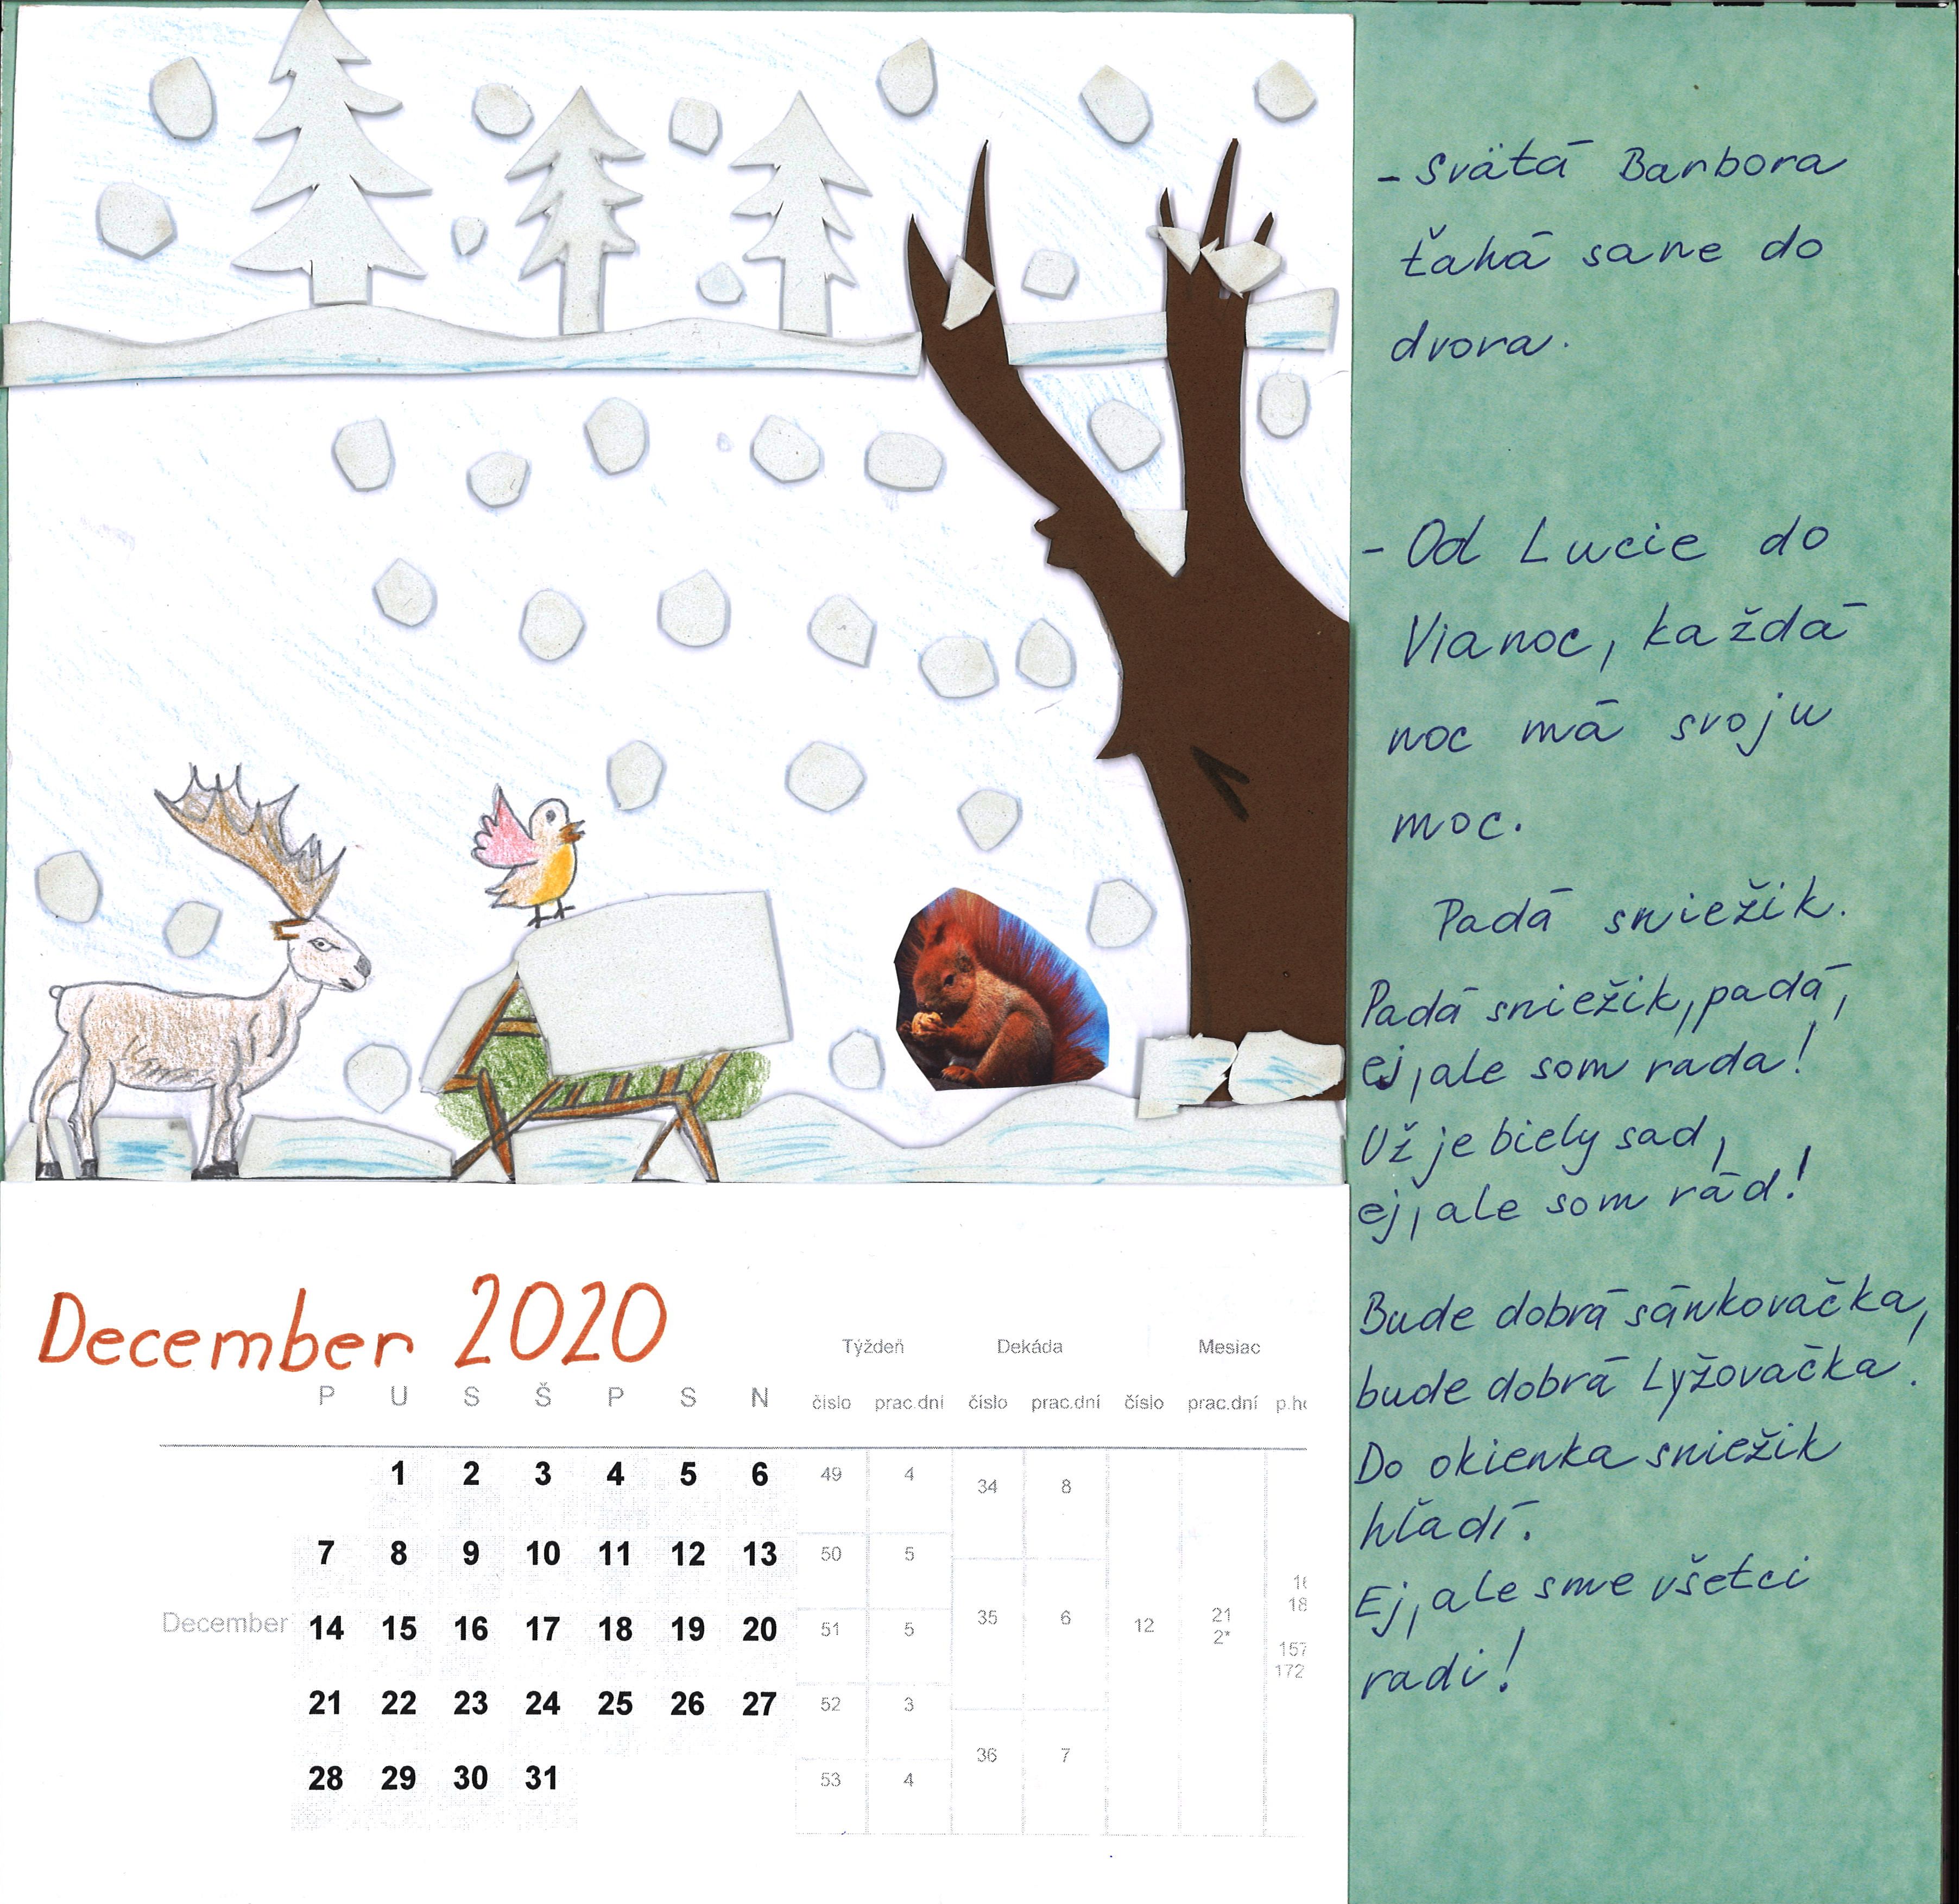 - Svätá Barbora
ťahá sane do
dvora.
- Od Lucie do
Vianoc, každá
noc má svoju
moc.
Padá sniežik.
Padá sniežik, padá,
ej, ale som rada!
Už je biely sad,
ej, ale som rád!
Bude dobrá sánkovačka,
bude dobrá Lyžovačka.
Do okienka sniežik
hľadí.
Ej, ale sme všetci
radi!
December 2020
Týždeň Dekáda Mesiac
P U S Š P S N číslo prac.dní číslo prac.dní číslo prac.dní
1 2 3 4 5 6 49 4 34 8
7 8 9 10 11 12 13 50 5
December 14 15 16 17 18 19 20 51 5 35 6 12 21
2*
21 22 23 24 25 26 27 52 3
28 29 30 31 53 4 36 7